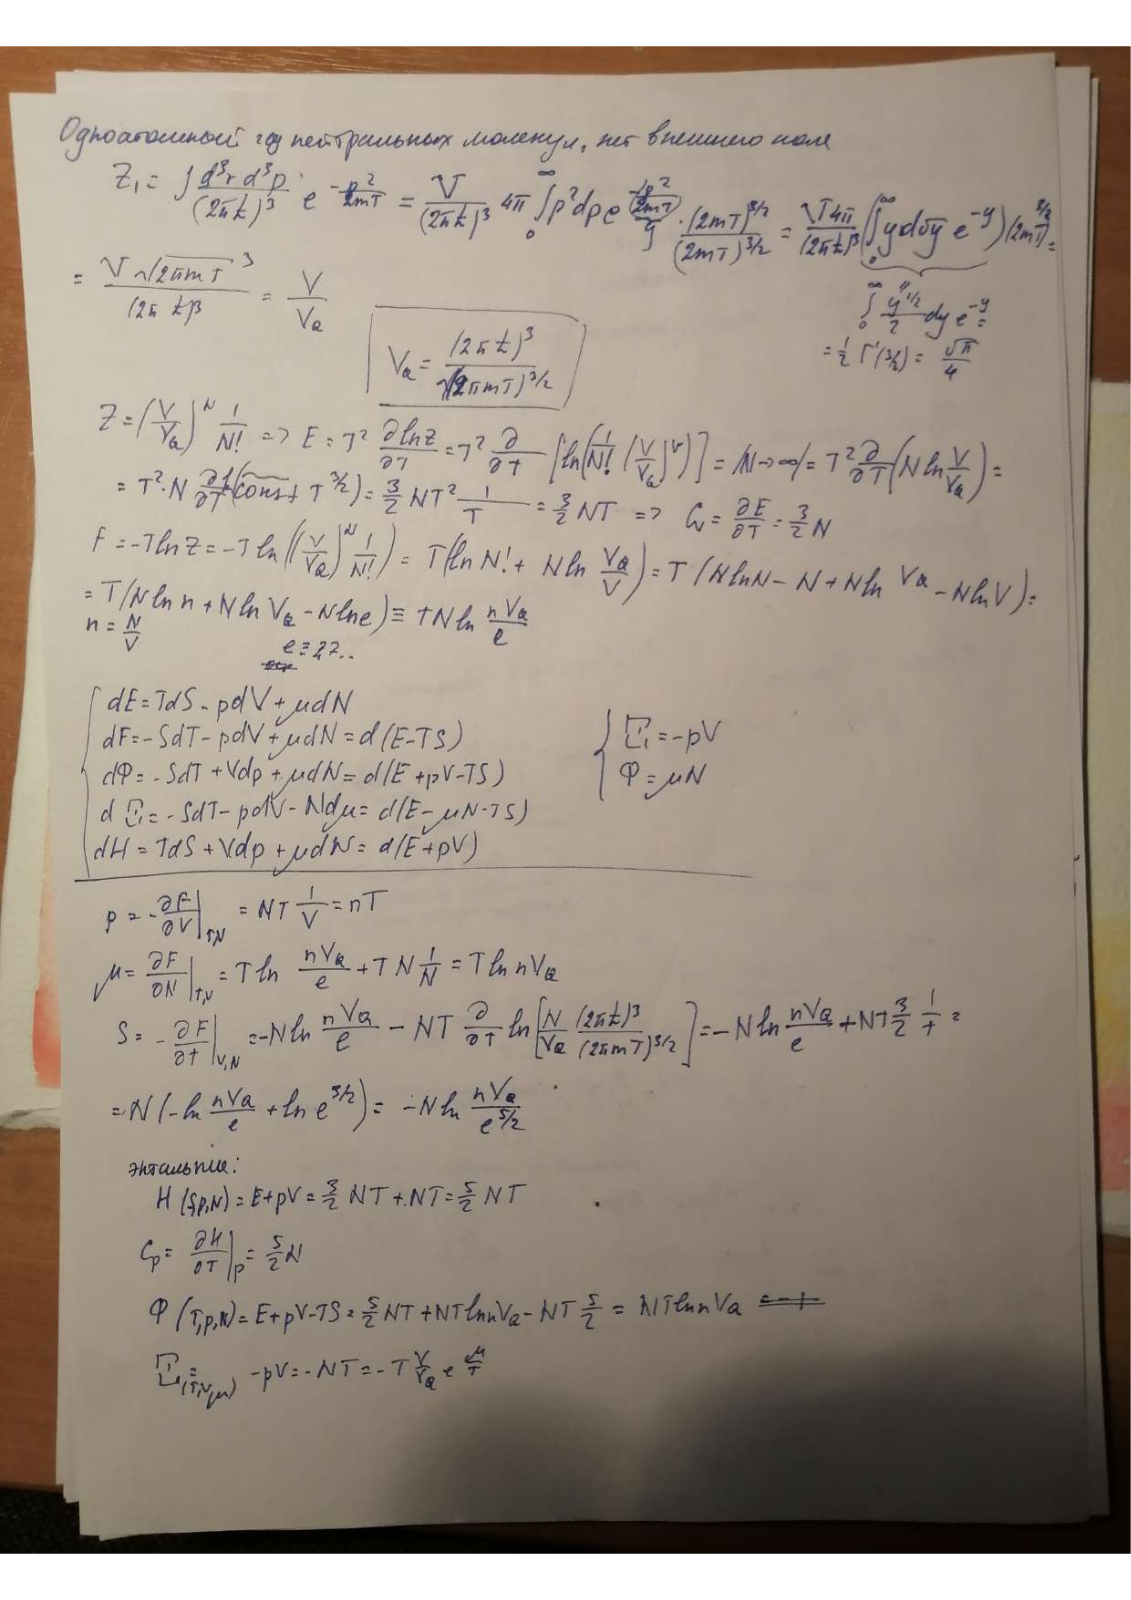 Одноатомный газ нейтральных молекул, нет внешнего поля
Z₁ = ∫ d³r d³p / (2πħ)³ e^(-p²/2mT) = V/(2πħ)³ 4π ∫₀^∞ p²dp e^(-p²/2mT) · (2mT)^(3/2)/(2mT)^(3/2) = V4π/(2πħ)³ (∫₀^∞ y d√y e^(-y)) (2mT)^(3/2) =
= V √(2πmT)³ / (2πħ)³ = V/V_Q
∫₀^∞ y^(1/2)/2 dy e^(-y) =
= ½ Γ(3/2) = √π/4
V_Q = (2πħ)³ / (2πmT)^(3/2)
Z = (V/V_Q)^N 1/N! => E = T² ∂lnZ/∂T = T² ∂/∂T [ln(1/N! (V/V_Q)^N)] = /N→∞/ = T² ∂/∂T (N ln V/V_Q) =
= T²·N ∂/∂T (const T^(3/2)) = 3/2 NT² 1/T = 3/2 NT => C_V = ∂E/∂T = 3/2 N
F = -T lnZ = -T ln((V/V_Q)^N 1/N!) = T(ln N! + N ln V_Q/V) = T(N lnN - N + N ln V_Q - N lnV) =
= T(N ln n + N ln V_Q - N ln e) ≡ TN ln nV_Q/e
n = N/V
e ≡ 2,7..
dE = TdS - pdV + μdN
dF = -SdT - pdV + μdN = d(E-TS)
Ω = -pV
dΦ = -SdT + Vdp + μdN = d(E+pV-TS)
Φ = μN
dΩ = -SdT - pdV - Ndμ = d(E-μN-TS)
dH = TdS + Vdp + μdN = d(E+pV)
p = -∂F/∂V|_T,N = NT 1/V = nT
μ = ∂F/∂N|_T,V = T ln nV_Q/e + TN 1/N = T ln nV_Q
S = -∂F/∂T|_V,N = -N ln nV_Q/e - NT ∂/∂T ln[N/V_Q (2πħ)³/(2πmT)^(3/2)] = -N ln nV_Q/e + NT 3/2 1/T =
= N(-ln nV_Q/e + ln e^(3/2)) = -N ln nV_Q/e^(5/2)
энтальпия:
H(S,p,N) = E+pV = 3/2 NT + NT = 5/2 NT
C_p = ∂H/∂T|_p = 5/2 N
Φ(T,p,N) = E+pV-TS = 5/2 NT + NT ln nV_Q - NT 5/2 = NT ln nV_Q
Ω(T,V,μ) = -pV = -NT = -T V/V_Q e^(μ/T)